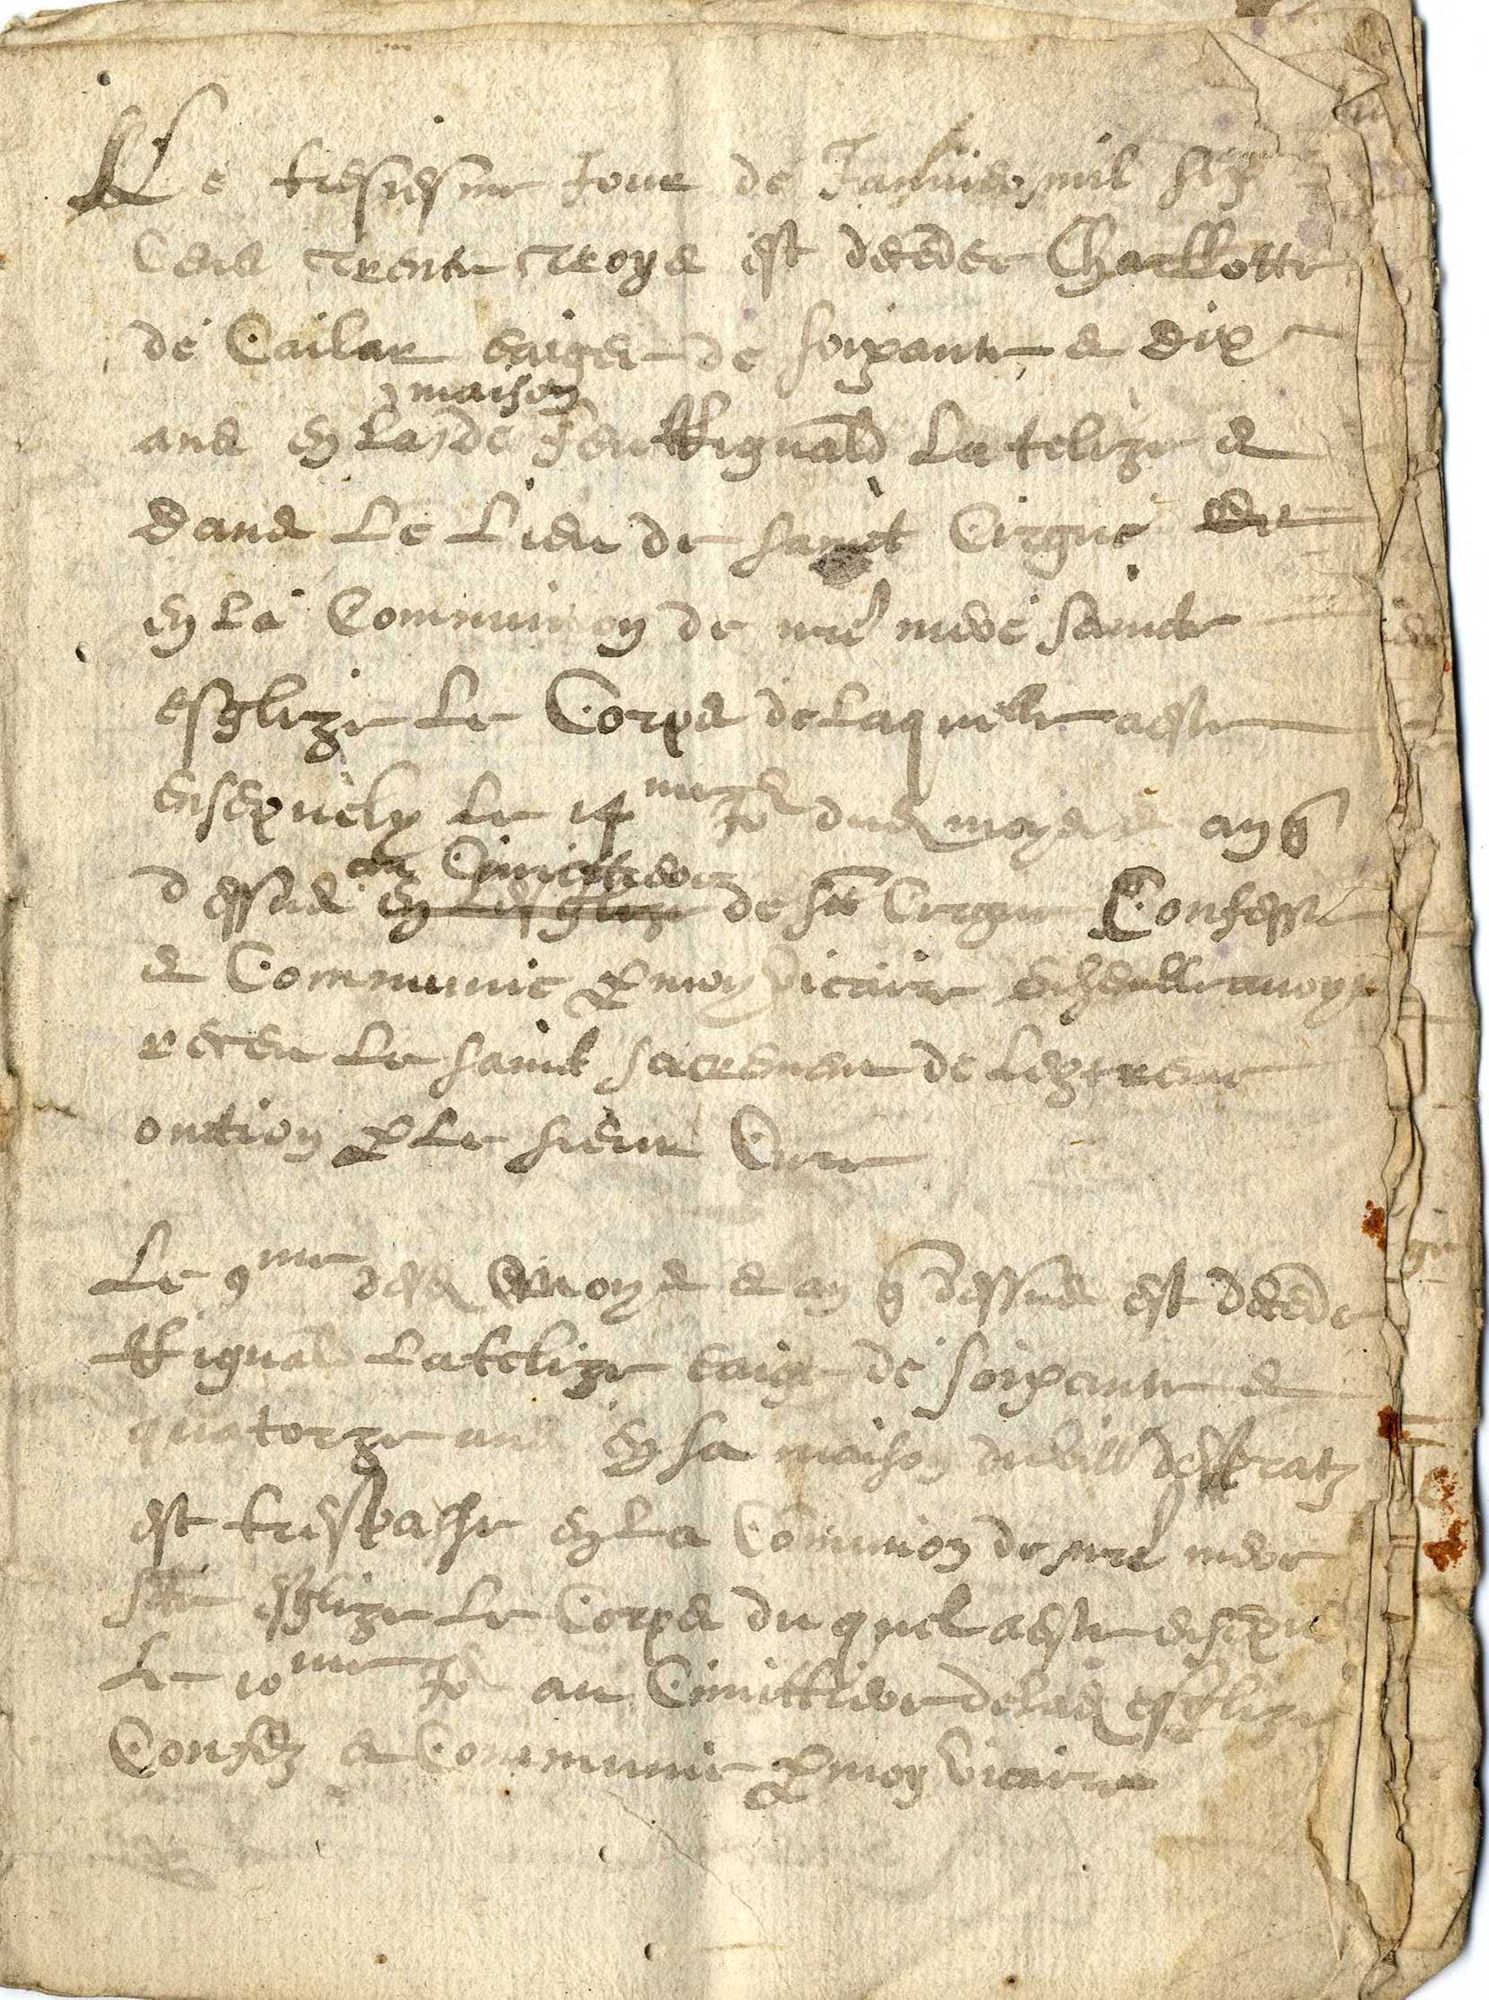 Le tresiesme Jour de Januier mil six
Cens trente troys est decedee Charllotte
de Cailar eaigee de soixante & dix
maison
ans en la de feu Rignald Latelize &
dans Le Lieu de sainct Cirgue
en La Communion de nre mere saincte
esglize Le Corps de Laquelle a este
ensepuely Le 14me Jr dud moys & an q
au Cimettiere
dessus en Lesglize de sct Cirgue Confesse
& Communie p moy vicaire avoyt
receu Le sainct sacrement de Lextreme
onction p Le sieur Cure
Le 9me desd moys & an q dessus est decede
Rignald Latelize eaige de soixante &
quatorze ans en sa maison du vill
est trespasse en La Communion de nre mere
ste esglize Le Corps du quel a este ensepue
Le 10me Jr au Cimittiere de lad esglize
Confes & Communie p moy vicaire